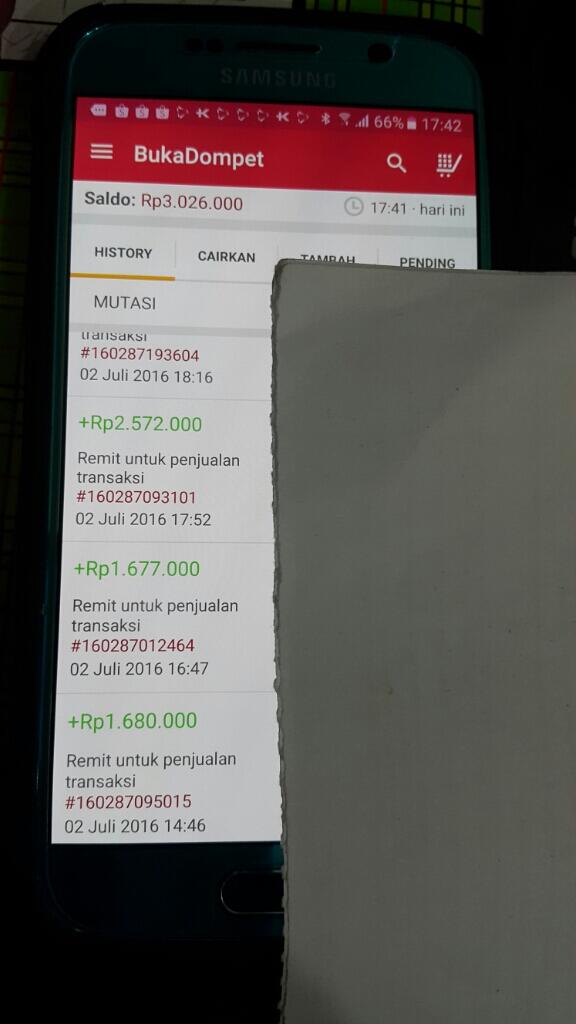 SAMSUNG
66% 17:42
BukaDompet
Saldo: Rp3.026.000 17:41 · hari ini
HISTORY CAIRKAN TAMBAH PENDING
MUTASI
transaksi
#160287193604
02 Juli 2016 18:16
+Rp2.572.000
Remit untuk penjualan
transaksi
#160287093101
02 Juli 2016 17:52
+Rp1.677.000
Remit untuk penjualan
transaksi
#160287012464
02 Juli 2016 16:47
+Rp1.680.000
Remit untuk penjualan
transaksi
#160287095015
02 Juli 2016 14:46